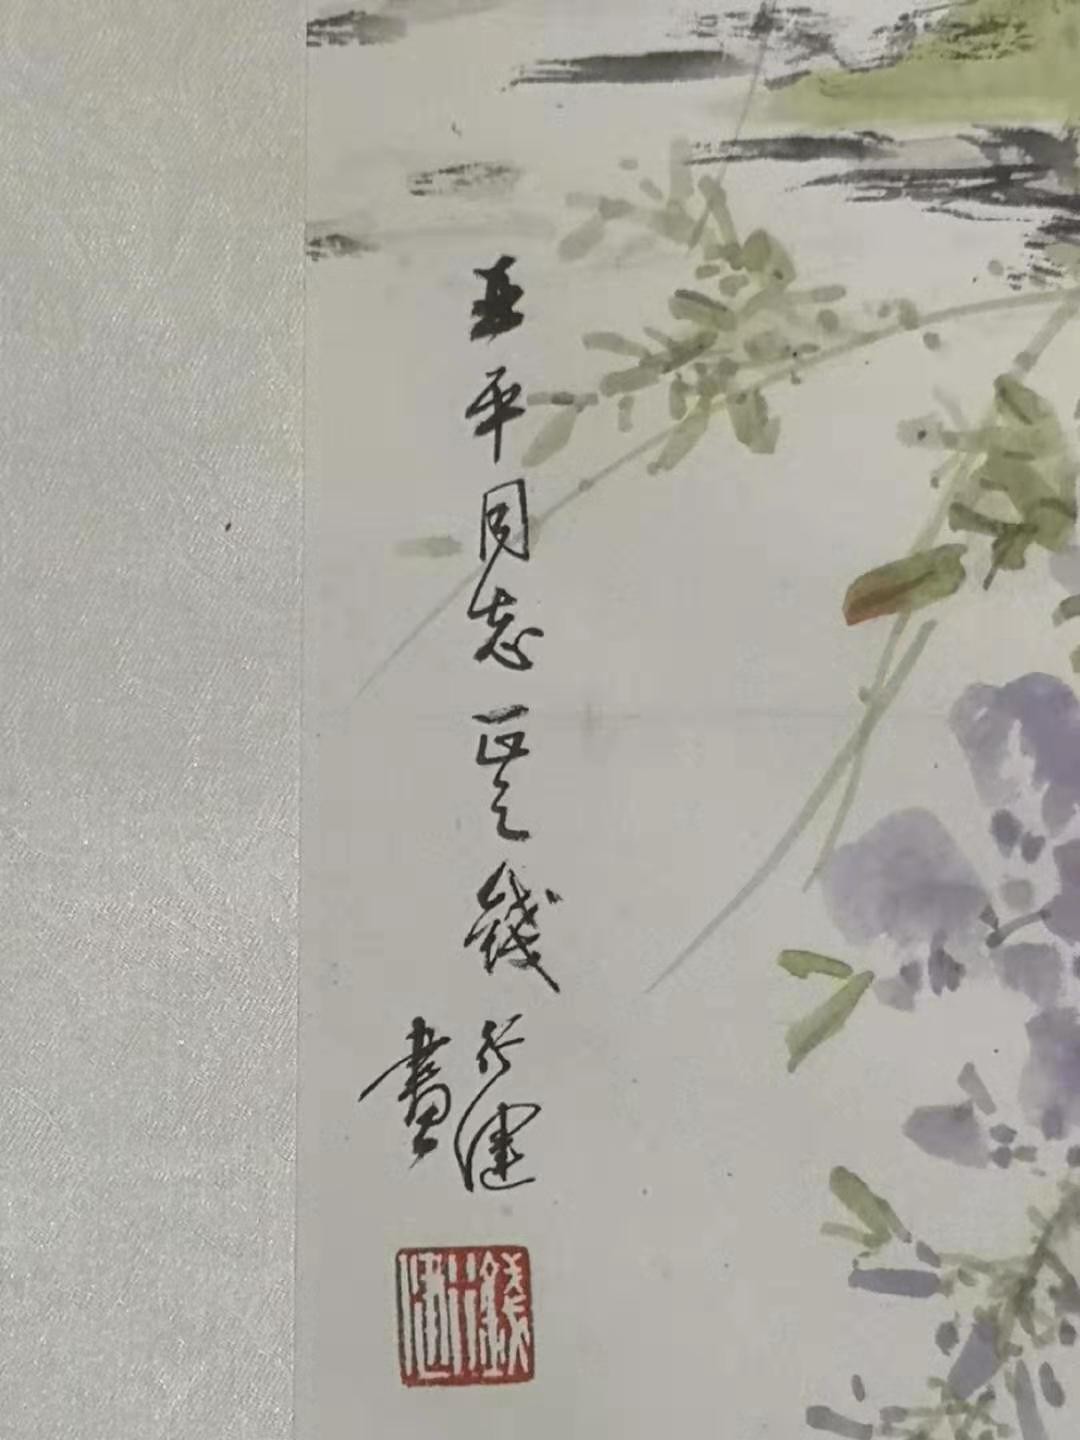 亚平同志正之钱行健
畫
钱行健